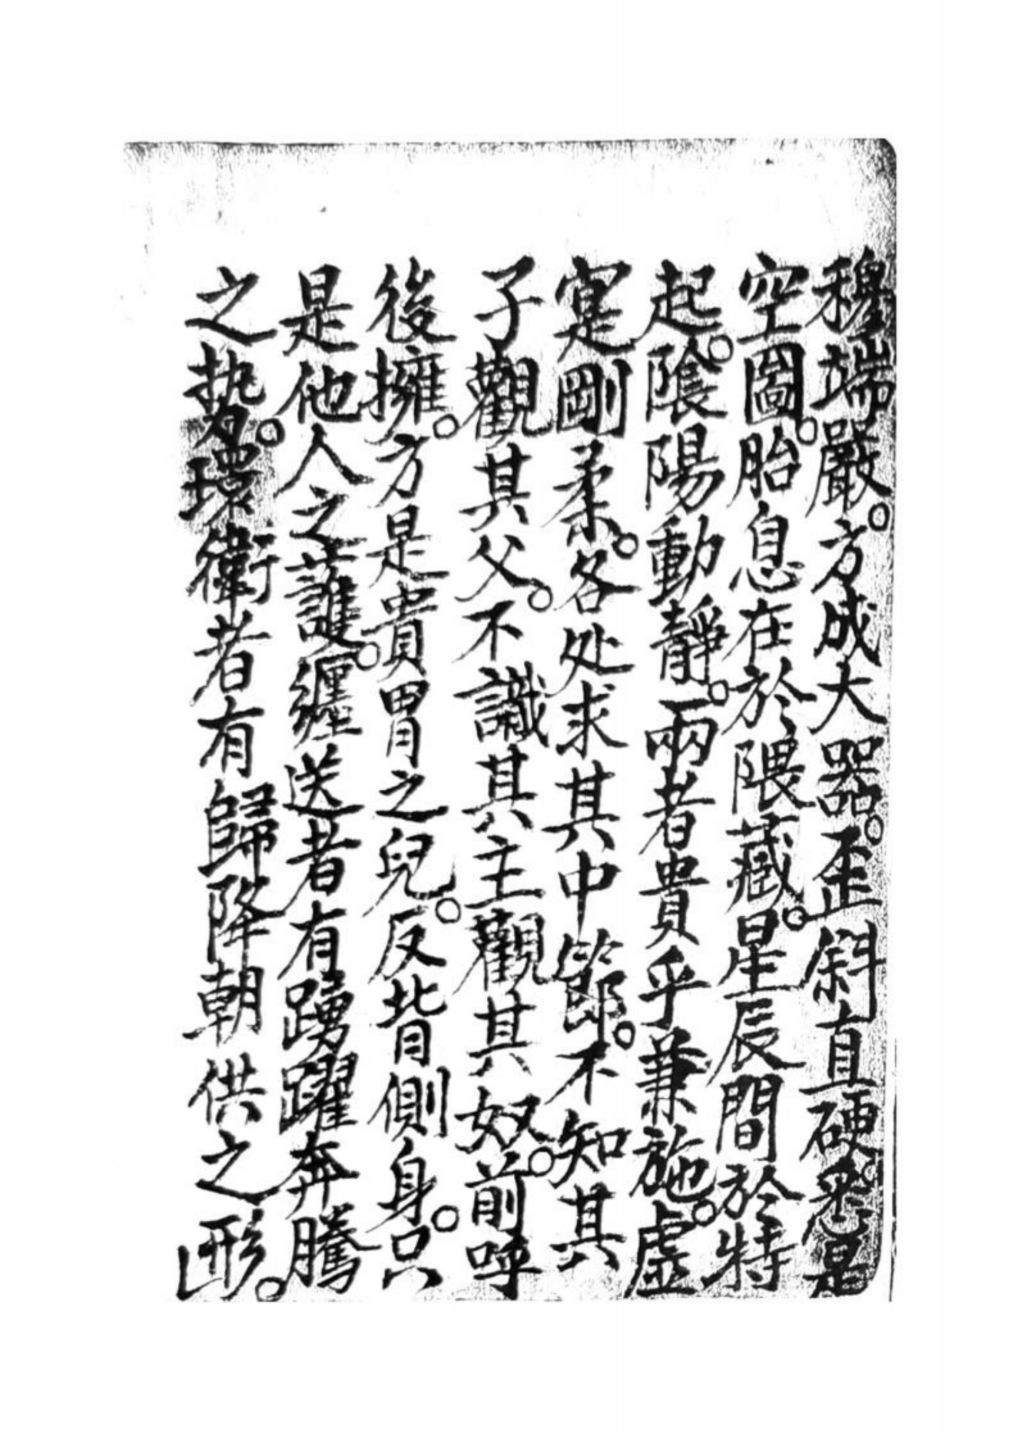 穆端嚴。方成大器。歪斜直硬。悉是
空圖。胎息在於隈藏。星辰間於特
起。陰陽動靜。兩者貴乎兼施。虛
寔剛柔。各处求其中節。不知其
子觀其父。不識其主觀其奴。前呼
後擁。方是貴胃之兒。反背側身。只
是他人之護。纏送者有踴躍奔騰
之势。環衛者有歸降朝供之形。